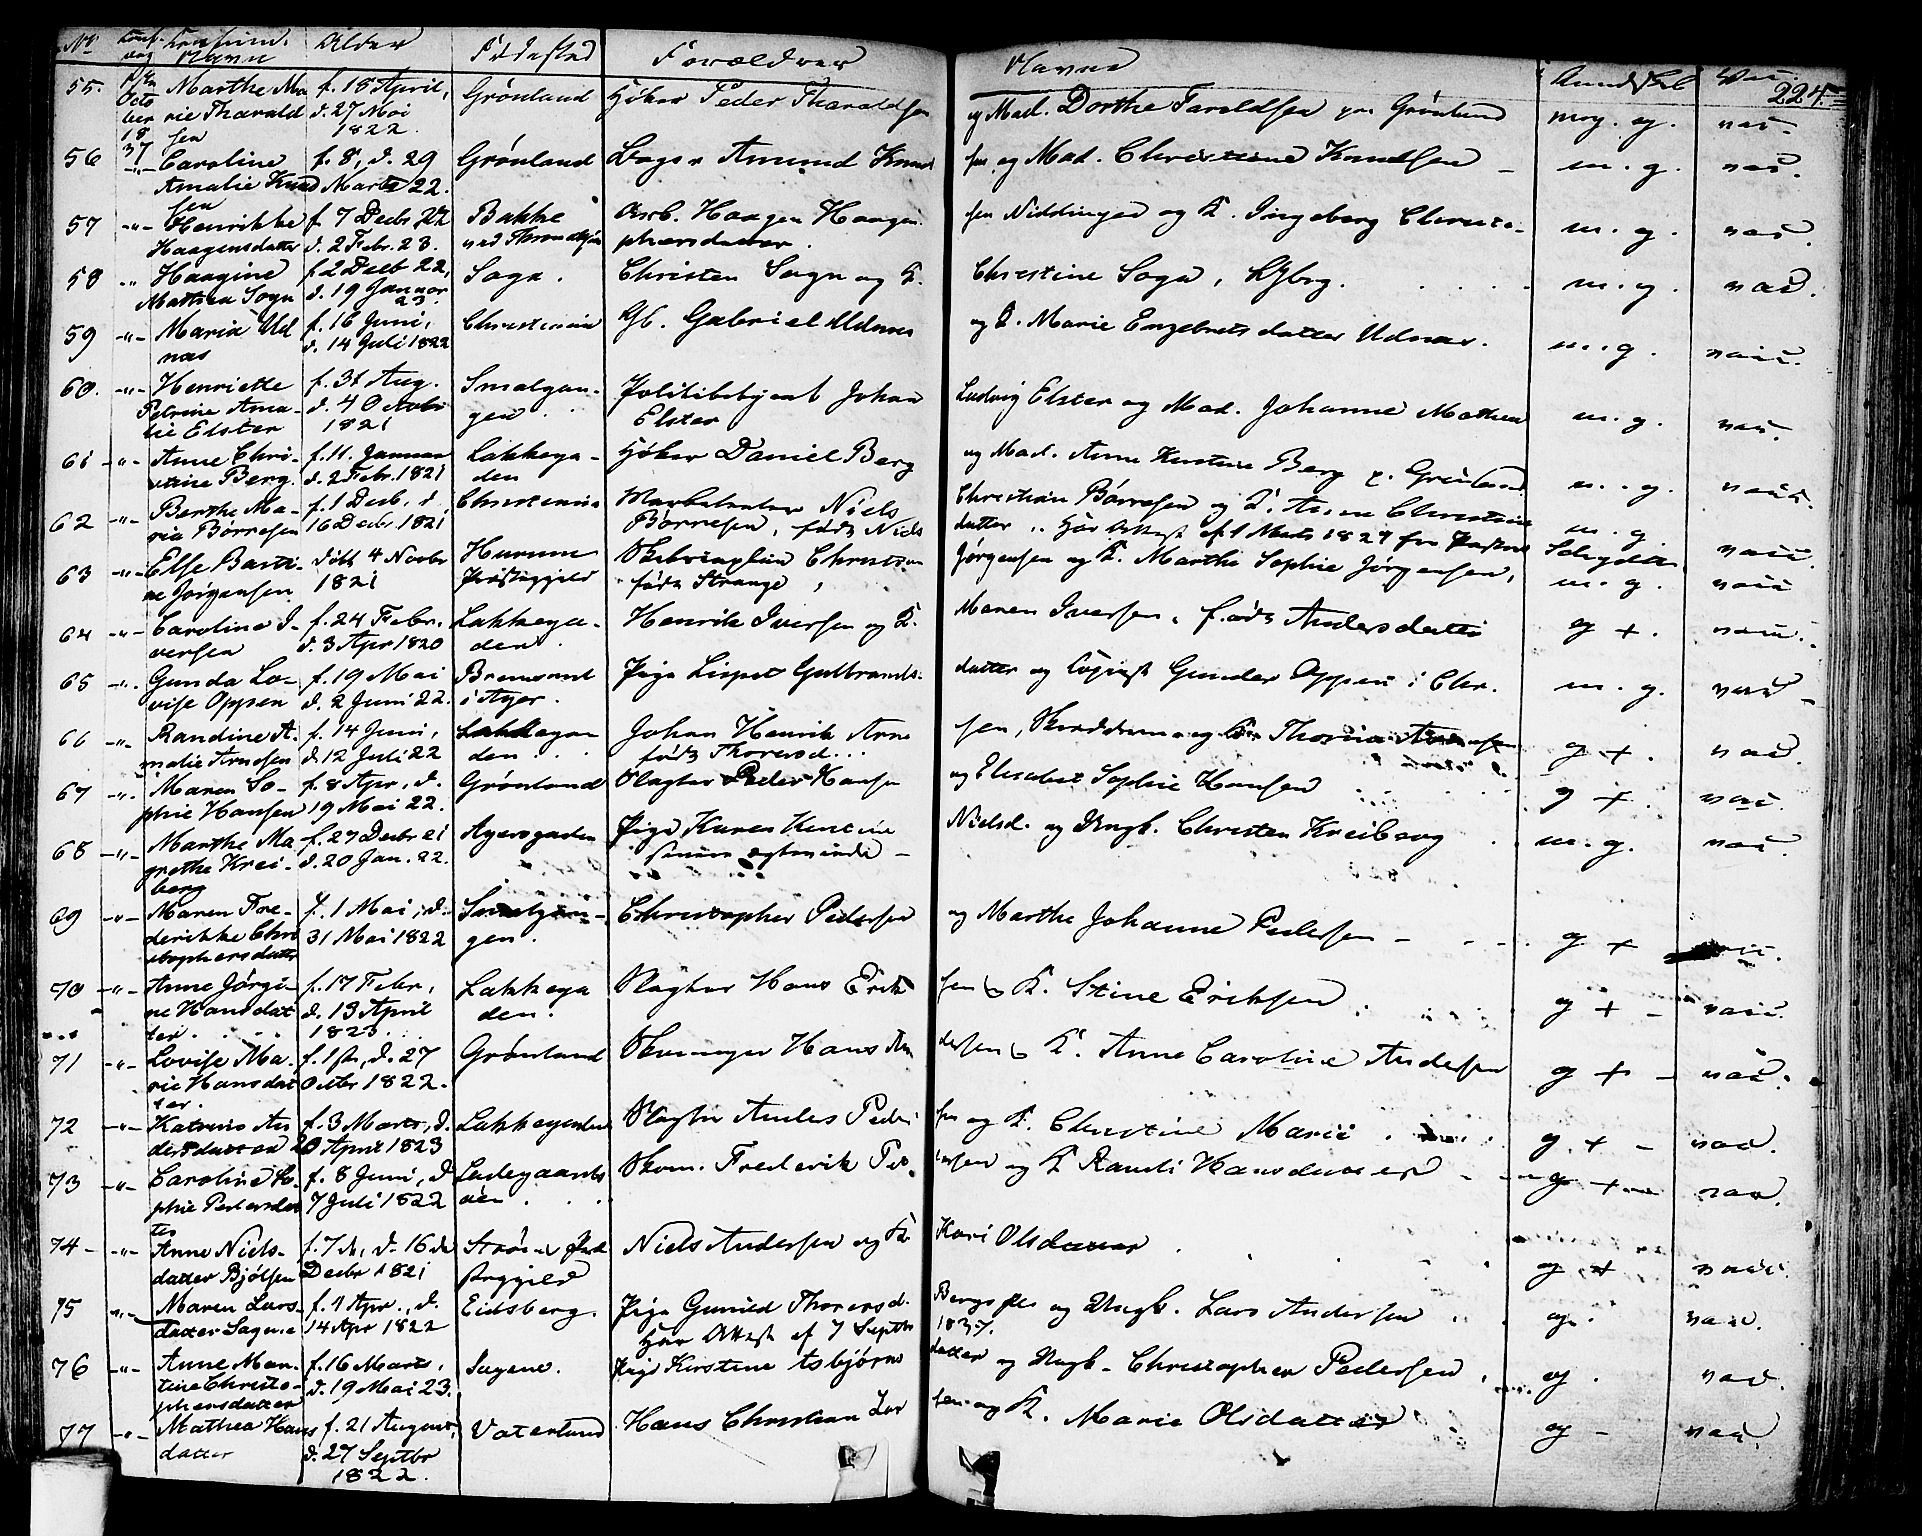 No. Conf. dag Confirm. Navn Alder Fødested Forældres Navne Vac. 224.
55. 1ste October 1837 Marthe Marie Tharaldsen f. 18 April, d. 27 Mai 1822 Grønland Høker Peder Tharaldsen og Mad. Dorthe Taraldsen paa Grønland meg. g. nat.
56 -"- Caroline Amalie Knudsen f. 8, d. 29 Marts 22. Grønland Amund Knudsen og Mad. Christine Knudsen m. g. nat.
57 -"- Henrikke Haagensdatter f. 7 Decbr 22 d. 2 Febr. 23. Bakke ved Throndhjem Arb. Haagen Haagensen og K. Ingeborg Christophersdatter. m. g. nat.
58 " Haagine Mathea Sogn f. 2 Decb 22, d. 19 Januar 23. Sogn. Christen Sogn og K. Christine Sogn, m. g. nat.
59 -"- Maria Udnæs f. 16 Juni, d. 14 Juli 1822 Christiania Gabriel Udnæs og K. Marie Engebretsdatter Udnæs. m. g. nat.
60. -"- Henriette Petrine Amalie Elster f. 31 Aug. d. 4 Octobr 1821 Smalgangen Politibetjent Johan Ludvig Elster og Mad. Johanne Mathea Elster m. g. nat.
61 -"- Anne Christine Berg f. 11. Januar d. 2 Febr. 1821 Lakkegaden Høker Daniel Berg og Mad. Anne Kirstine Berg p. Grønland m. g. nat.
62 -"- Berthe Maria Børresen f. 1 Decb, d. 16 Decbr 1821 Christiania Niels Christian Børresen og K. Anne Christine Børresen, født Nielsdatter.. Har Attest af 1 Marts 1827 fra Pastor m. g. nat.
63 -"- Else Bastine Jørgensen døbt 4 Novbr 1821 Hurum Præstegjeld Christian Jørgensen og K. Marthe Sophie Jørgensen, født Strange, m. g. nat
64 -"- Caroline Iversen f. 24 Febr. d. 3 Apr 1820 Lakkegaden. Henrik Iversen og K. Maren Iversen, født Andersdatter g +. nat.
65 -"- Gunda Lovise Oppen f. 19 Mai d. 2 Juni 22. Bremsund i Ager. Pige Lispet Gulbrandsdatter og Gunder Oppen i Chr. m. g. nat
66 -"- Randine Amalie Arnesen f. 14 Juni, d. 12 Juli 22 Lakkegaden. Johan Henrik Arnesen, Skrædder og K. Thorine Arnesen født Thoresd. g +. nat.
67 -"- Maren Sophie Hansen f. 8 Apr, d. 19 Mai 22. Grønland Slagter Peder Hansen og Elisabet Sophie Hansen g +. nat.
68 -"- Marthe Margrethe Kreiberg f. 27 Decbr 21 d. 20 Jan. 22. Agersgaden Pige Karen Kirstine Nielsd. og Ungk. Christen Kreiberg senere egteviede m. g. nat.
69 -"- Maren Frederikke Christophersdatter f. 1 Mai, d. 31 Mai 1822 Smalgangen. Christopher Pedersen og Marthe Johanne Pedersen g +
70 -"- Anne Jørgine Hansdatter f. 17 Febr, d. 13 April 1823. Lakkegaden. Slagter Hans Eriksen og K. Stine Eriksen g + nat.
71 -"- Lovise Marie Hansdatter f. 1ste, d. 27 Octbr 1822. Grønland Skomager Hans Andersen og K. Anne Caroline Andersen g + nat.
72 -"- Katrine Andersdatter f. 3 Marts, d. 20 April 1823 Lakkegaden Slagter Anders Pedersen og K. Christine Marie g. + nat.
73 -"- Caroline Sophie Pedersdatter f. 8 Juni, d. 7 Juli 1822 Ladegaardsøen Skom. Frederik Petersen og K Randi Hansdatter g + nat.
74- -"- Anne Nielsdatter Bjølsen f. 7de, d. 16de Decbr 1821 Strøm Præstegjeld Niels Andersen og K Kari Olsdatter. g + nat.
75 -"- Maren Larsdatter Sagene f. 1 Apr., d. 14 Apr 1822 Eidsberg. Pige Gunild Thoresd. Bergspl. og Ungk. Lars Andersen Har Attest af 7 Septb 1837. g. nat.
76 -"- Anne Martine Christophersdatter f. 16 Marts, d. 19 Mai 23. Sagene. Pige Kirstine Asbjørnsdatter og Ungk. Christopher Pedersen. g. nat.
77 -"- Mathea Hansdatter f. 21 August, d. 27 Septbr 1822. Vaterland Hans Christian Larsen og K. Marie Olsdatter g - nat.